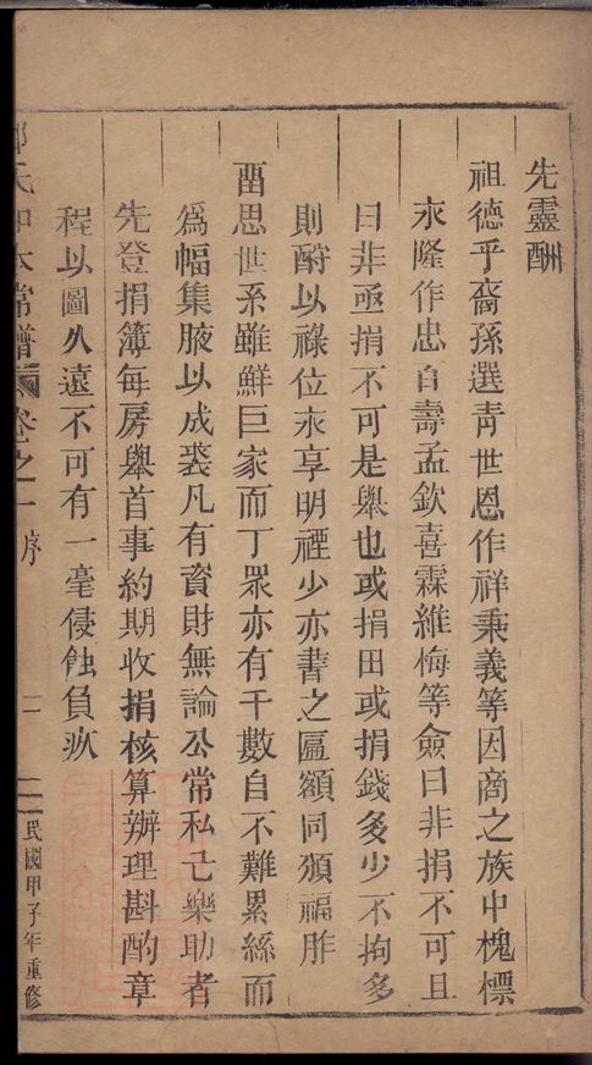 先靈酬
祖德乎裔孫選青世恩作祥秉義等因商之族中槐標
永隆作忠百壽孟欽喜霖維梅等僉曰非捐不可且
曰非亟捐不可是舉也或捐田或捐錢多少不拘多
則酧以祿位永享明禋少亦書之匾額同頒福胙
畱思世系雖鮮巨家而丁眾亦有千數自不難累絲而
為幅集腋以成裘凡有資財無論公常私己樂助者
先登捐簿每房舉首事約期收捐核算辦理斟酌章
程以圖久遠不可有一毫侵蝕負疚
氏 常譜 卷之一 序 二 民國甲子年重修